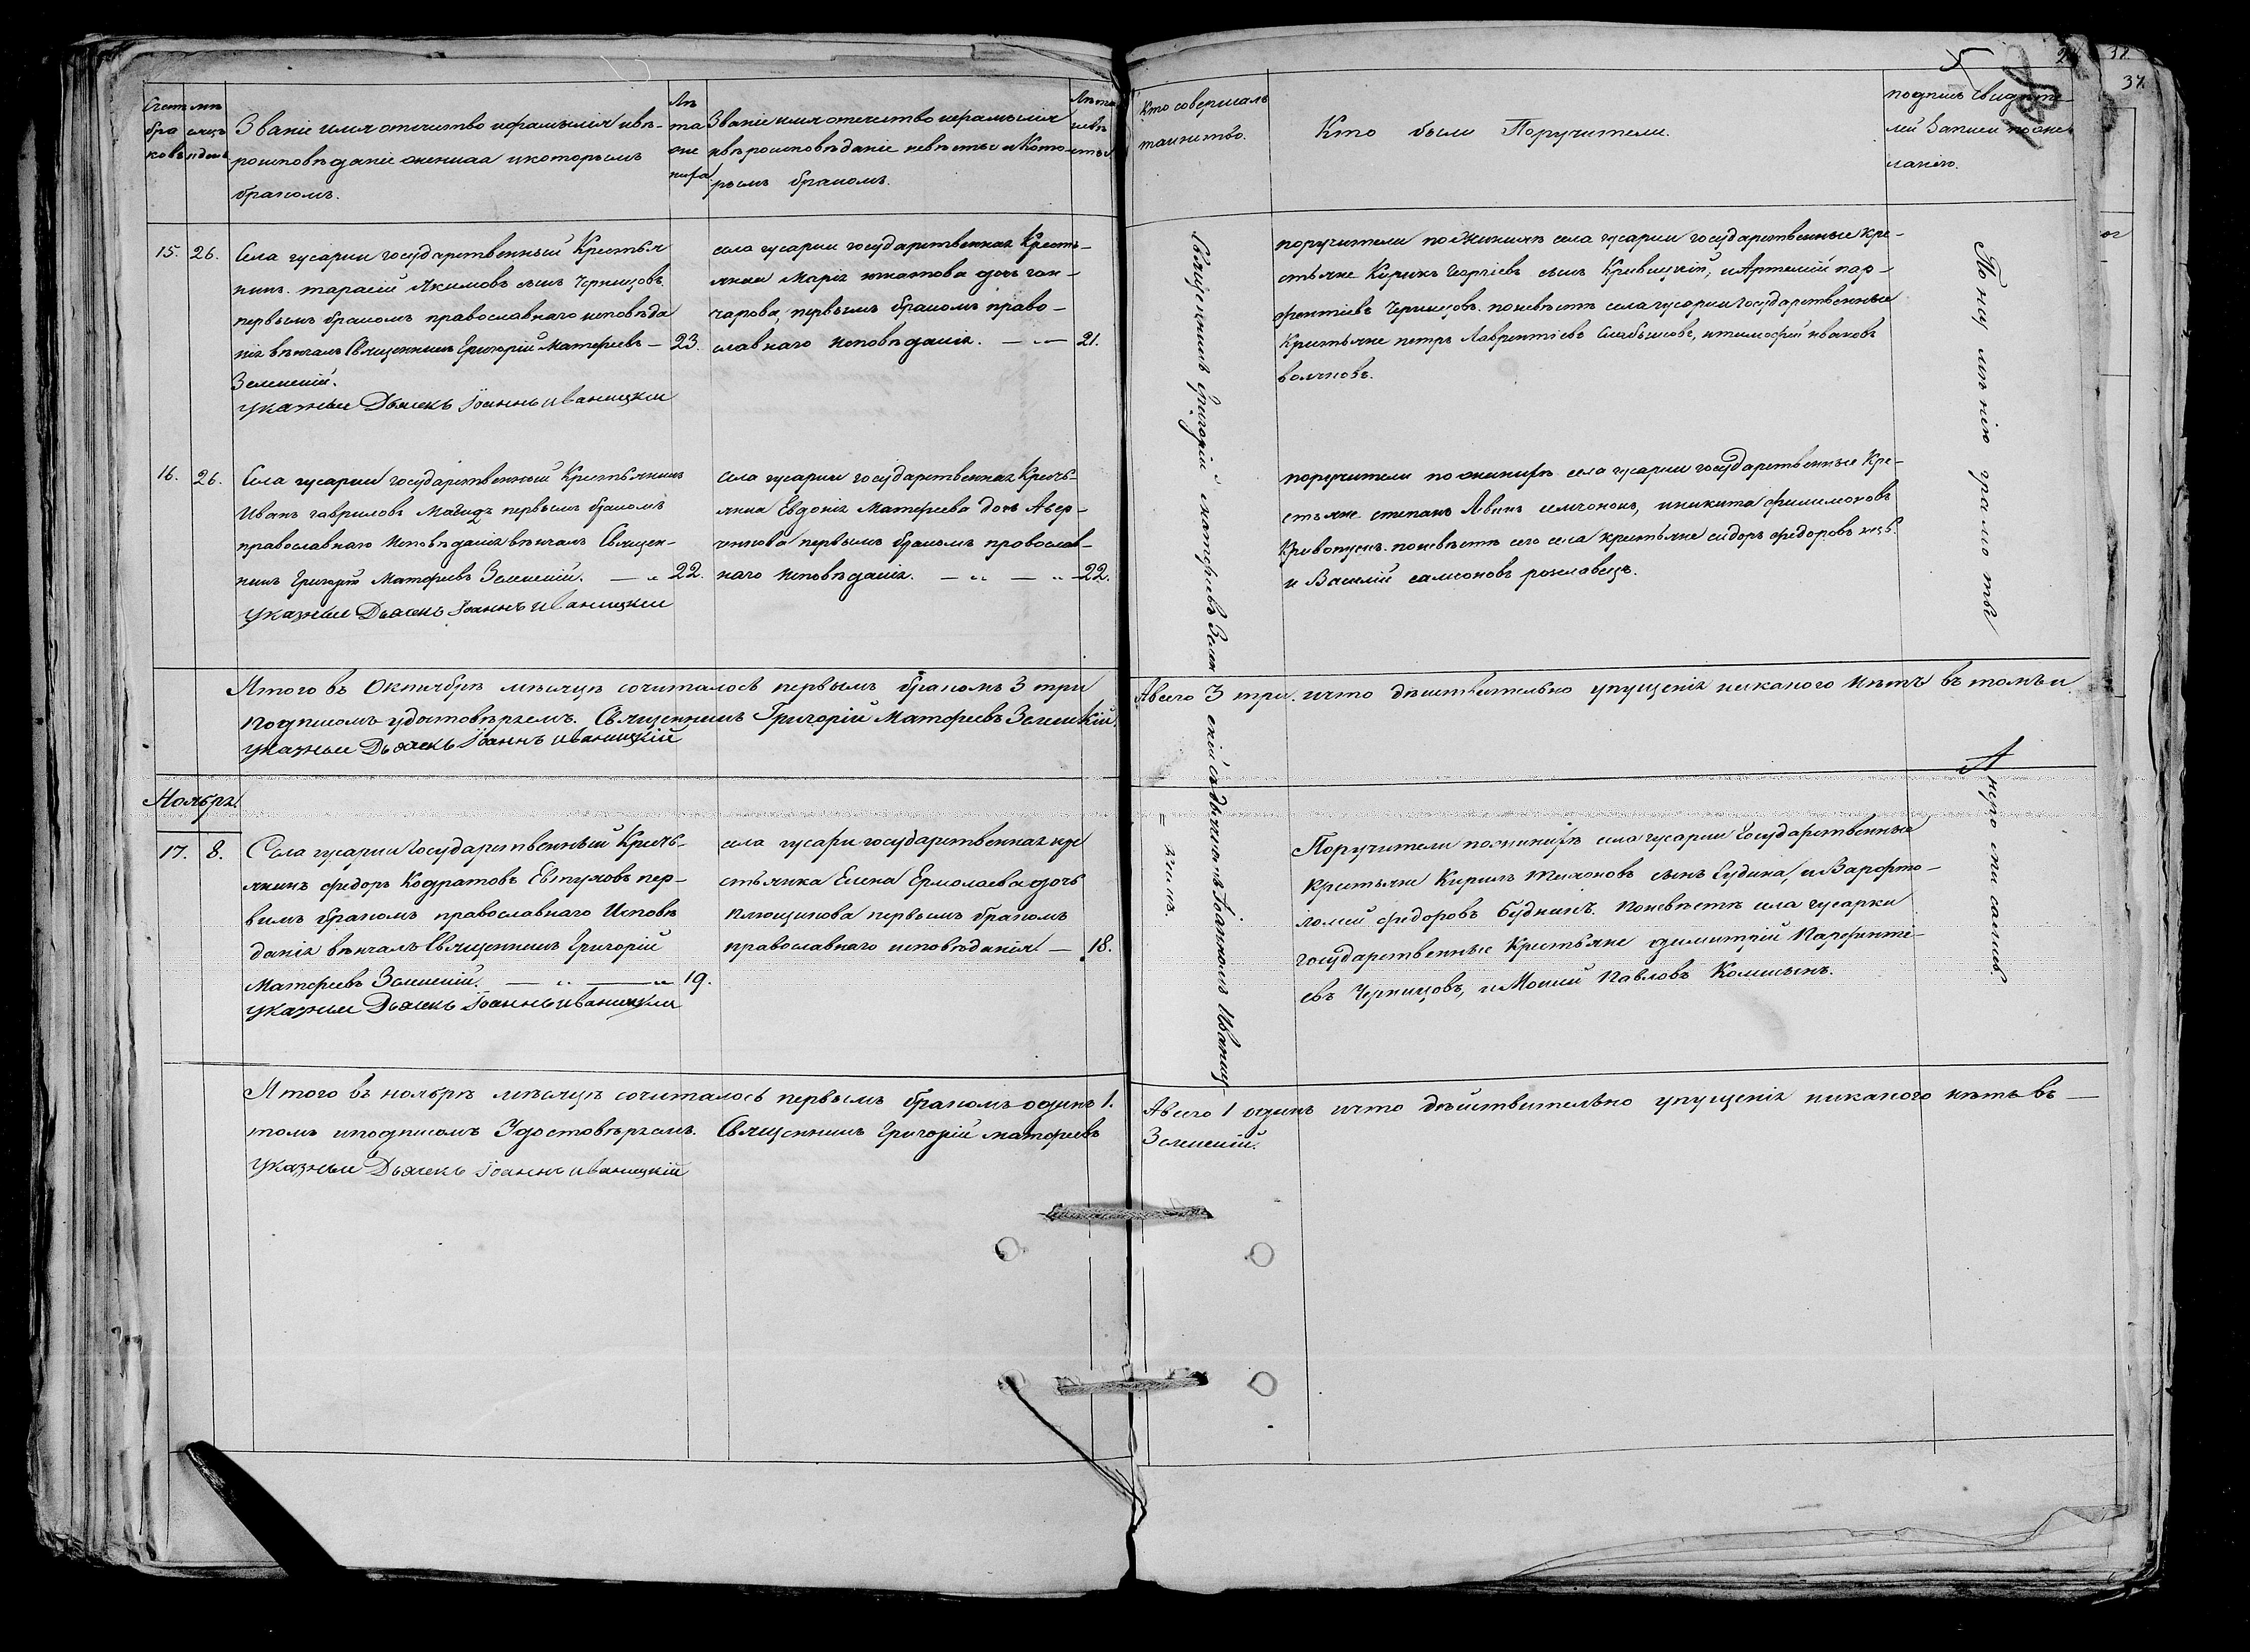 Счетъ браковъ
Мѣсяцъ и день
Званіе имя отечиство ифамылія ивѣ-
роисповѣданіе жениха икоторымъ
бракомъ.
Лѣта жениха
Званіе имя отечество иерамылія
ивѣроисповѣданіе невѣсты икото-
рымъ бракомъ.
Лѣта невѣсты
15. 26.
Села гусарки государственный Крестья
нинъ. тарасій Якимовъ сынъ Чернецовъ
первымъ бракомъ православнаго исповѣда
нія вѣнчалъ Священникъ Григорій Матфеевъ — 23.
Зеленскій.
указный Дьячекъ Іоаннъ иваницкій
села гусарки государственная Кресть-
янка Марія игнатова дочь гон-
чарова, первымъ бракомъ право-
славнаго исповѣданія. — 21.
16. 26.
Села гусарки государственный Крестьянинъ
Иванъ гавриловъ первымъ бракомъ
православнаго исповѣданія вѣнчалъ Священ-
никъ Григорій Матфеевъ Зеленскій. — „ 22.
указный Дьячекъ Іоаннъ иваницкій
села гусарки государственная Кресть-
янка Евдокія Матфеева дочь Авер-
ченкова первымъ бракомъ провослав-
наго исповѣданія. — „ — „ 22.
Итого въ Октябрѣ мѣсяцѣ сочиталось первымъ бракомъ 3 три
подписомъ удостовѣряемъ. Священникъ Григорій Матфеевъ Зеленскій.
указный Дьячекъ Іоаннъ иваницкій
Ноябрь
17. 8.
Села гусарки Государственный Кресть-
янинъ федоръ Кодратовъ Евтуховъ пер-
вимъ бракомъ православнаго Исповѣ
данія вѣнчалъ Священникъ Григорій
Матфеевъ Зеленскій. — „ — „ 19.
указный Дьячекъ Іоаннъ иваницкій
села гусарки государственная кре
стьянка Елена Ермолаева дочь
клющикова первымъ бракомъ
православнаго исповѣданія — 18.
Итого въ ноябрѣ мѣсяцѣ сочиталось первымъ бракомъ одинъ 1.
томъ иподписомъ Удостовѣряемъ. Священникъ Григорій матфеевъ
Указный Дьячекъ Іоаннъ иваницкій
37.
Кто совершалъ
таинство.
Кто были Поручители.
подпись свидѣте-
лей Записи по же-
ланію.
Священникъ Григорій матфеевъ Зеленскій съ дьячкомъ Іоанномъ Иваниц
= кимъ.
поручители по Женихѣ села гусарки государственные кре-
стьяне Кирикъ Георгіевъ сынъ Кривицкій, и Артемій пар-
фентіевъ Чернецовъ. поневѣстѣ села гусарки Государственные
Крестьяне петръ Лаврентіевъ итимофей ивановъ
волчковъ.
поручители по женихѣ села гусарки государственные Кре-
стьяне степанъ иникита филимоновъ
поневѣстѣ сего села крестьяне сидоръ федоровъ
и Василій самсоновъ рославецъ.
А всего 3 три. ичто дѣиствительно упущенія никакого нѣтъ въ томъ и
Поручители поженихѣ села гусарки Государственные
Крестьяне Кирилъ Тихоновъ сынъ и Варфто-
ломей федоровъ Буднинъ. Поневѣстѣ села гусарки
государственные Крестьяне димитрій Парфенте-
евъ Чернецовъ, и Мосий Павловъ
А всего 1 одинъ ичто дѣйствительно упущенія никакого нѣтъ въ —
Зеленскій.